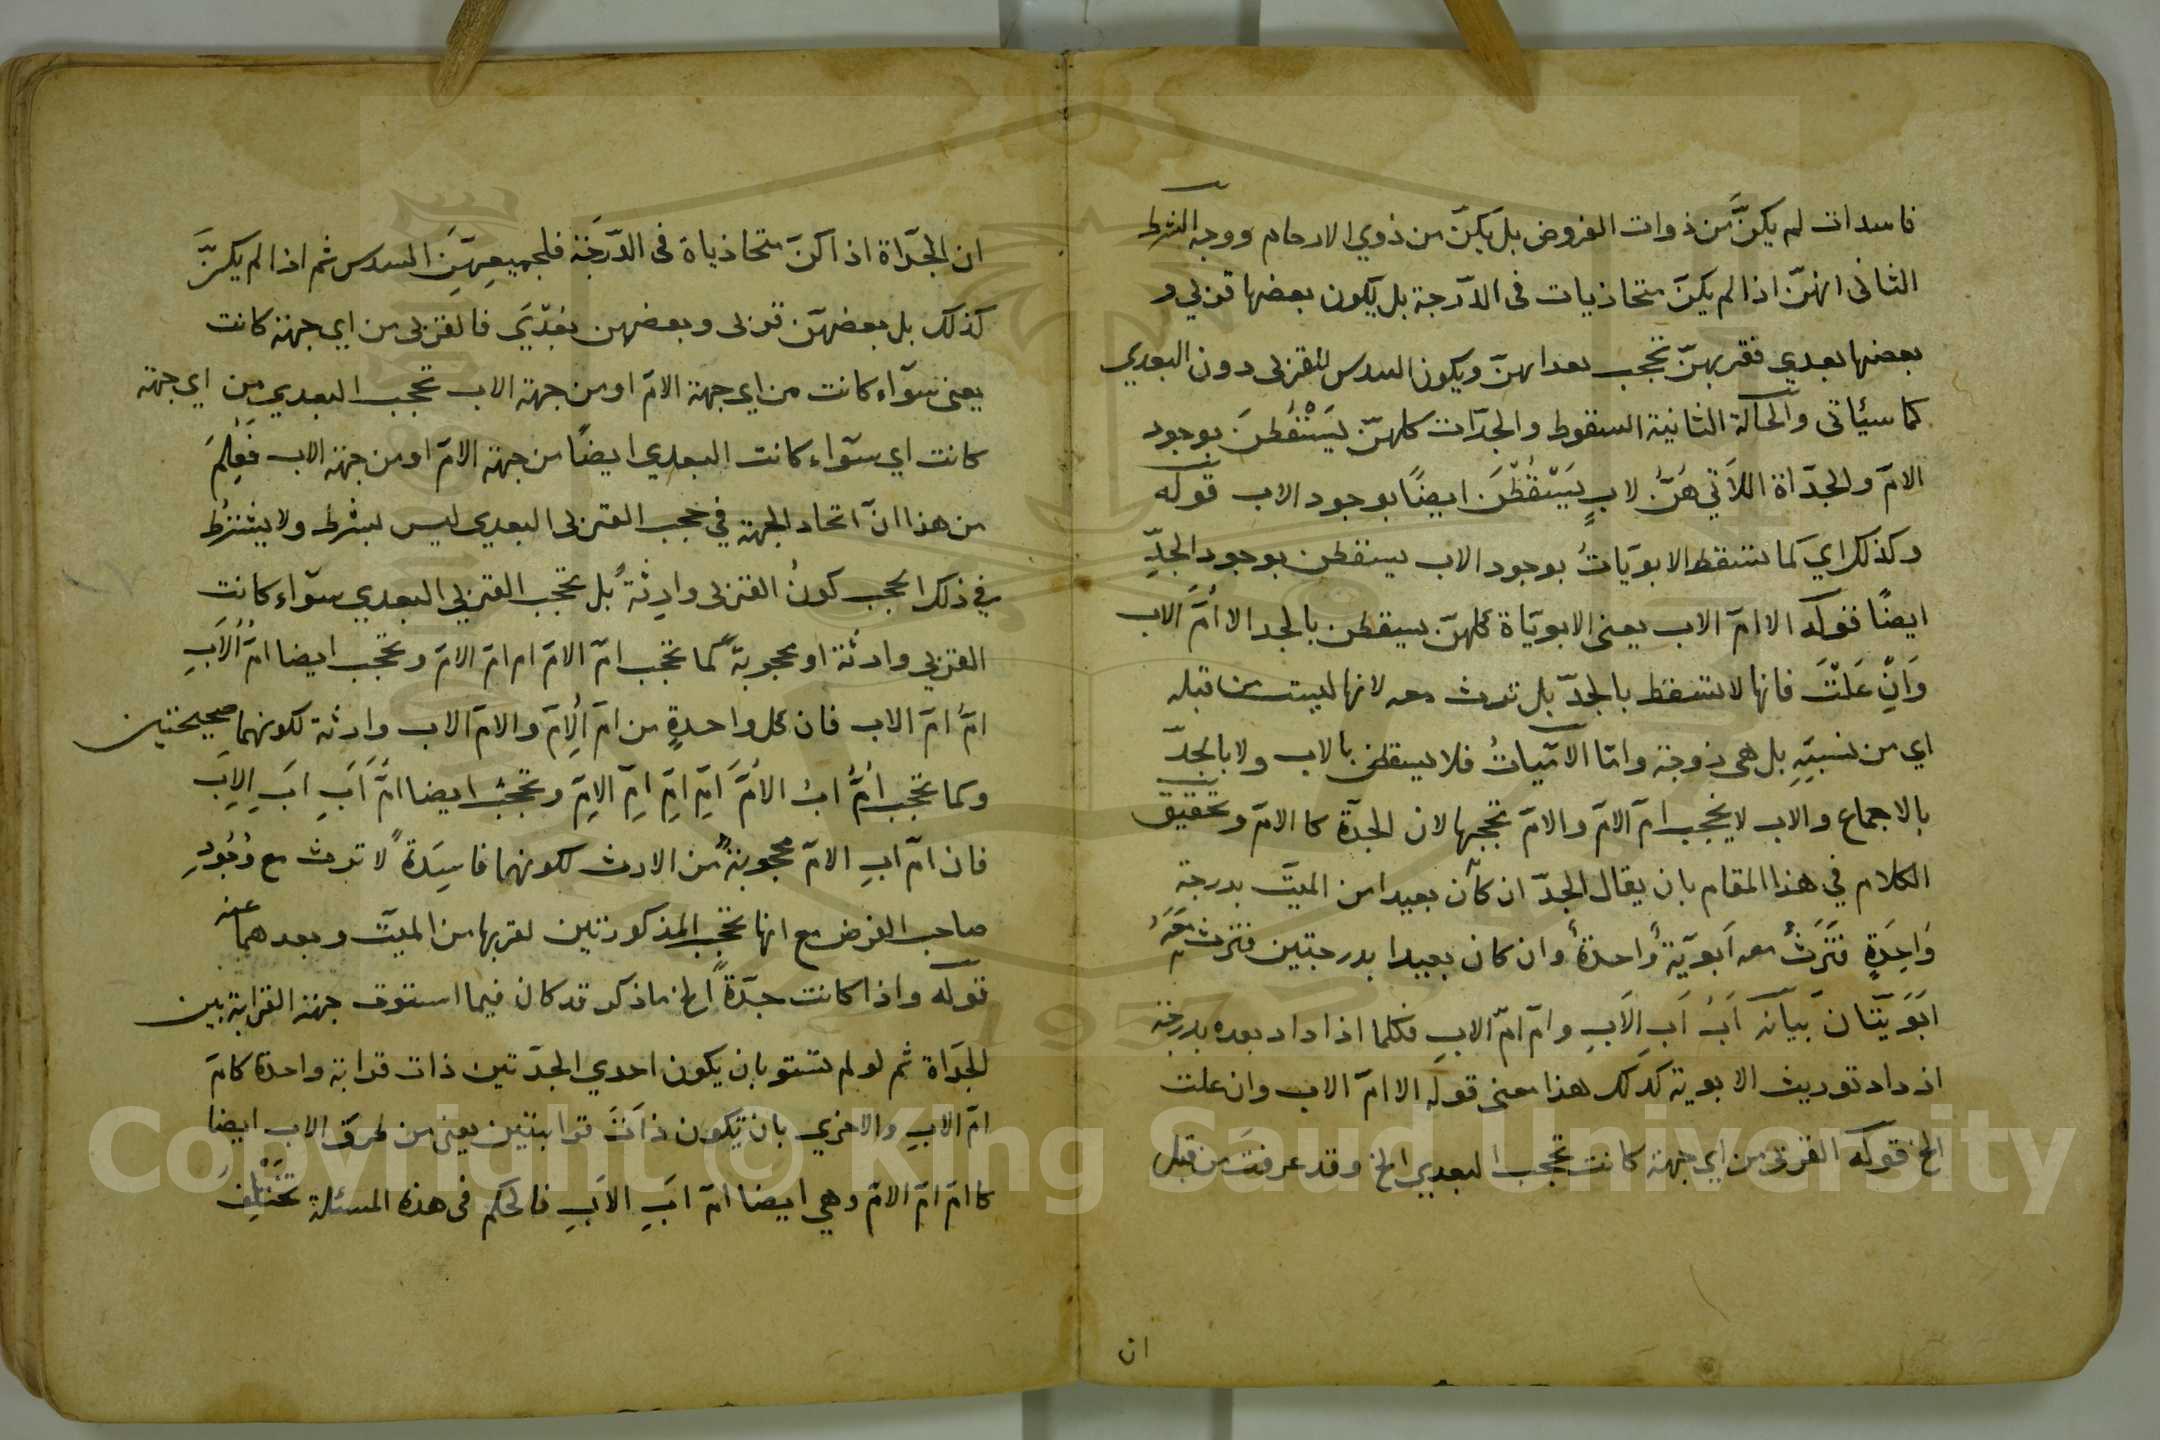 فاسدات لم يكنَّ من ذوات الفروض بل يكنّ من ذوي الارحام ووجه الشرط
الثانى انهنّ اذا لم يكنّ متحاذيات فى الدّرجة بل يكون بعضها قربي و
بعضها بعدي فقربهنّ تحجب بعداهنّ ويكون السدس للقربى دون البعدي
كما سيئاتى والحالة الثانية السقوط والجدّات كلهنّ يَسْقُطنَ بوجود
الامّ والجدّاة اللاَتي هُنَّ لابٍ يَسْقُطْنَ ايضًا بوجود الاب قوله
وكذلك اي كما تسقط الابويّاتُ بوجود الاب يسقطن بوجود الجدِّ
ايضًا قوله الا امّ الاب يعنى الابويّاة كلهنّ يسقطن بالجد الا اُمَّ الاب
وَاِنْ عَلَتْ فانها لا تسقط بالجدّ بل ترث معه لانها ليست من قبله
اي من نسبَتِهِ بل هى زوجة وامّا الامّيّاتُ فلا يسقطن بالاب ولا بالجدّ
بالاجماع والاب لا يحجب امّ الامّ والامّ تحجبها لان الجدّة كا الامّ وتحقيق
الكلام في هذا المقام بان يقال الجدّ ان كان بعيدا من الميّت بدرجةٍ
وَاحِدَةٍ فَتَرَثُ معه اَبويّةٌ واحدةٌ وان كان بعيدا بدرجتين فترث مَعَهُ
ابَوِيّتَان بَيَانَه اَبُ اَبِ الاَبِ وامّ امّ الابِ فكلما اذا داد بعده بدرجة
اذداد توريث الابوية كدلك هذا معنى قوله الا امّ الاب وان علت
الخ قوله القربى من اي جهة كانت تحجب البعدي الخ وقد عرفتَ من قبل
ان
ان الجدّاة اذا كنّ متحاذياة فى الدّرجَة فلجميعِهنَّ السدس ثم اذا لم يكنَّ
كذلك بل بعضهنّ قربى وبعضهن بعُدّيَ فالقربى من اي جهة كانت
يعنى سوّاء كانت من اى جهة الامّ او من جهة الاب تحجب البعدي من اي جهة
كانت اي سوّاء كانت البعدي ايضًا من جهة الامّ او من جهة الاب فَعُلِمَ
من هذا انّ اتحاد الجهة في حجب القربى البعدي ليس بشرط ولا يشترُط
في ذلك الحجب كونُ القربى وارِثةً بل تحجب القربي البعدي سوّاء كانت
القربي وارثة او محجوبة كما تحجب امّ الامّ امّ امّ الامّ وتحجب ايضا امُّ الاَبِ
امَّ امّ الاب فان كل واحدةٍ من امّ الاِمّ والامّ الاب وارثة لكونهما صحيحتين
وكما تحجب اُمُّ ابُ الاُمَّ اَمِّ امِّ امِّ الامِّ وتحجب ايضا امُّ اَبِ ابَ الابِ
فان امّ ابِ الامّ محجوبة من الارث لكونهما فاسِدَةً لا ترث مع وُجُودِ
صاحب الفرض مع انها تحجب المذكورتين لقربها من الميّت وبعدهما عنه
قوله واذا كانت جدّةً الخ ما ذكر قد كان فيما استوت جهة القرابة بين
الجدّاة ثم لو لم تستو بان يكون احدي الجدّتين ذات قرابة واحدة كامّ
امّ الابِ والاخري بان تكون ذاتَ قرابتين يعنى من طرف الاب ايضا
كا امّ امّ الامّ وهي ايضا امّ ابَ الاَبِ فالحكم فى هذه المسئلة تَخْتَلِفُ
Copyright © King Saud University
1957